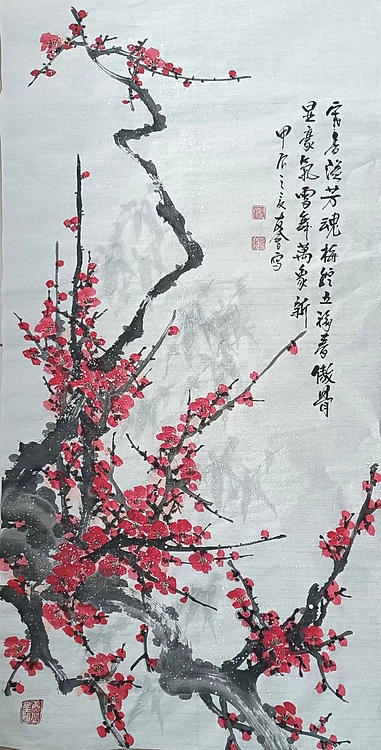 寒香溢芳魂梅绽五福春傲骨
显豪气雪舞万象新
甲辰之夏